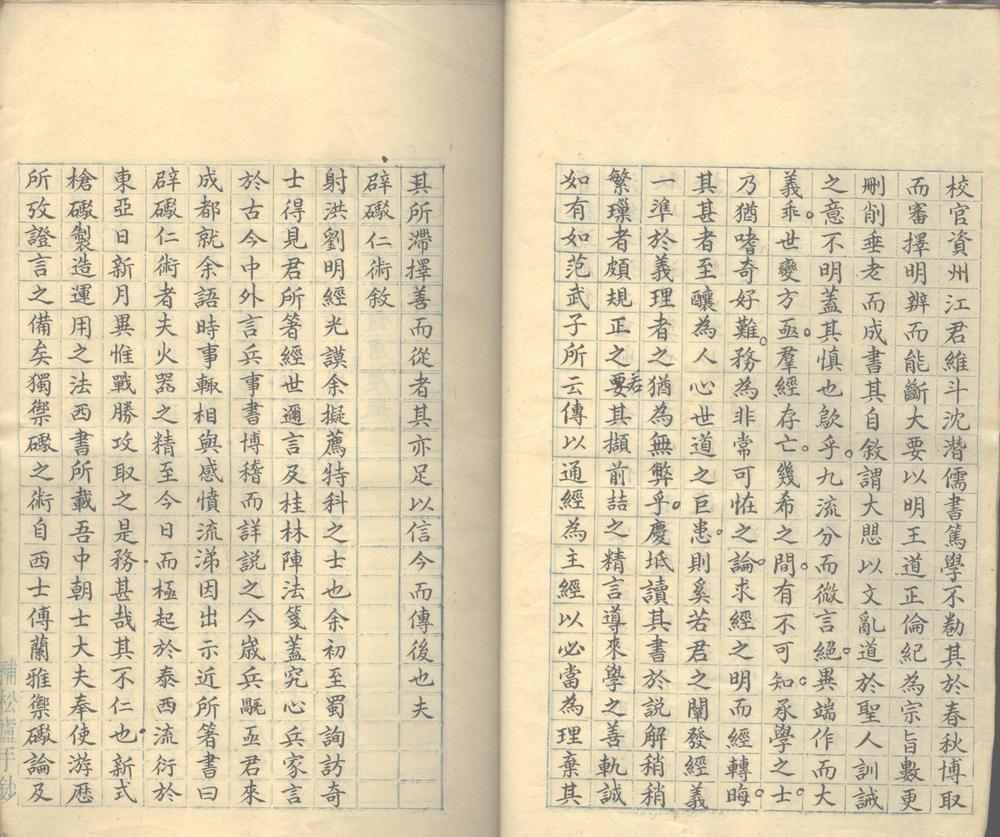 校官資州江君維斗沈潛儒書篤學不勌其於春秋博取
而審擇明辨而能斷大要以明王道正倫紀為宗旨數更
刪削垂老而成書其自敘謂大懼以文亂道於聖人訓誡
之意不明蓋其慎也歟乎九流分而微言絕異端作而大
義乖世變方亟羣經存亡幾希之間有不可知承學之士
乃猶嗜奇好難務為非常可恠之論求經之明而經轉晦
其甚者至釀為人心世道之巨患則奚若君之闡發經義
一準於義理者之猶為無弊乎慶坻讀其書於說解稍稍
繁瑣者頗規正之要若其擷前喆之精言導來學之善軌誠
如有如范武子所云傳以通經為主經以必當為理棄其
其所滯擇善而從者其亦足以信今而傳後也夫
辟礮仁術敘
射洪劉明經光謨余擬薦特科之士也余初至蜀詢訪奇
士得見君所箸經世邇言及桂林陣法箋蓋究心兵家言
於古今中外言兵事書博稽而詳說之今嵗兵熈亟君來
成都就余語時事輒相與感憤流涕因出示近所箸書曰
辟礮仁術者夫火器之精至今日而極起於泰西流衍於
東亞日新月異惟戰勝攻取之是務甚哉其不仁也新式
槍礮製造運用之法西書所載吾中朝士大夫奉使游歷
所攷證言之備矣獨禦礮之術自西士傅蘭雅禦礮論及
補松廬手鈔